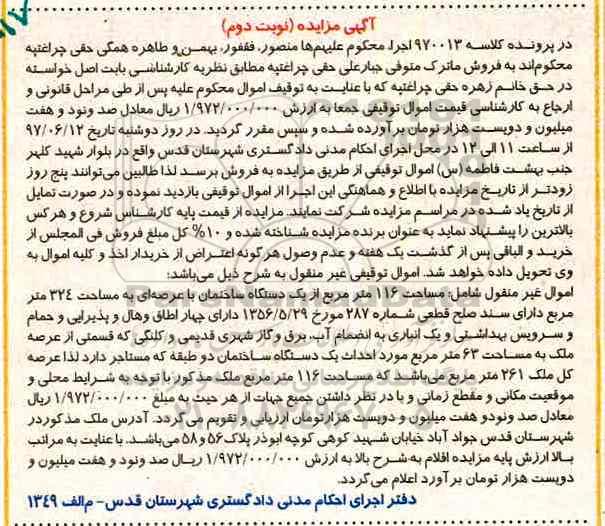 آگهی مزایده (نوبت دوم)
در پرونده کلاسه ۹۷۰۰۱۳ اجرا، محکوم علیهم‌ها منصور، فغفور، بهمن و طاهره همگی حقی چراغتپه
محکوم‌اند به فروش ماترک متوفی جبارعلی حقی چراغتپه مطابق نظریه کارشناسی بابت اصل خواسته
در حق خانم زهره حقی چراغتپه که با عنایت به توقیف اموال محکوم علیه پس از طی مراحل قانونی و
ارجاع به کارشناسی قیمت اموال توقیفی جمعا به ارزش ۱/۹۷۲/۰۰۰/۰۰۰ ریال معادل صد ونود و هفت
میلیون و دویست هزار تومان برآورده شده و سپس مقرر گردید. در روز دوشنبه تاریخ ۹۷/۰۶/۱۲
از ساعت ۱۱ الی ۱۲ در محل اجرای احکام مدنی دادگستری شهرستان قدس واقع در بلوار شهید کلهر
جنب بهشت فاطمه (س) اموال توقیفی از طریق مزایده به فروش برسد لذا طالبین می‌توانند پنج روز
زودتر از تاریخ مزایده با اطلاع و هماهنگی این اجرا از اموال توقیفی بازدید نموده و در صورت تمایل
از تاریخ یاد شده در مراسم مزایده شرکت نمایند. مزایده از قیمت پایه کارشناس شروع و هرکس
بالاترین را پیشنهاد نماید به عنوان برنده مزایده شناخته شده و ۱۰% کل مبلغ فروش فی المجلس از
خرید و الباقی پس از گذشت یک هفته و عدم وصول هرگونه اعتراض از خریدار اخذ و کلیه اموال به
وی تحویل داده خواهد شد. اموال توقیفی غیر منقول به شرح ذیل می‌باشد:
اموال غیر منقول شامل: مساحت ۱۱۶ متر مربع از یک دستگاه ساختمان با عرصه‌ای به مساحت ۳۲۴ متر
مربع دارای سند صلح قطعی شماره ۲۸۷ مورخ ۱۳۵۶/۵/۲۹ دارای چهار اطاق وهال و پذیرایی و حمام
و سرویس بهداشتی و یک انباری به انضمام آب، برق و گاز شهری قدیمی و کلنگی که قسمتی از عرصه
ملک به مساحت ۶۳ متر مربع مورد احداث یک دستگاه ساختمان دو طبقه که مستاجر دارد لذا عرصه
کل ملک ۲۶۱ متر مربع می‌باشد که مساحت ۱۱۶ متر مربع ملک مذکور با توجه به شرایط محلی و
موقعیت مکانی و مقطع زمانی و با در نظر داشتن جمیع جهات از هر حیث به مبلغ ۱/۹۷۲/۰۰۰/۰۰۰ ریال
معادل صد ونودو هفت میلیون و دویست هزارتومان ارزیابی و تقویم می گردد. آدرس ملک مذکوردر
شهرستان قدس جواد آباد خیابان شهید کوهی کوچه ابوذر پلاک ۵۶ و ۵۸ می‌باشد. با عنایت به مراتب
بالا ارزش پایه مزایده اقلام به شرح بالا به ارزش ۱/۹۷۲/۰۰۰/۰۰۰ ریال صد ونود و هفت میلیون و
دویست هزار تومان برآورد اعلام می‌گردد.
دفتر اجرای احکام مدنی دادگستری شهرستان قدس- م/الف ۱۳۴۹